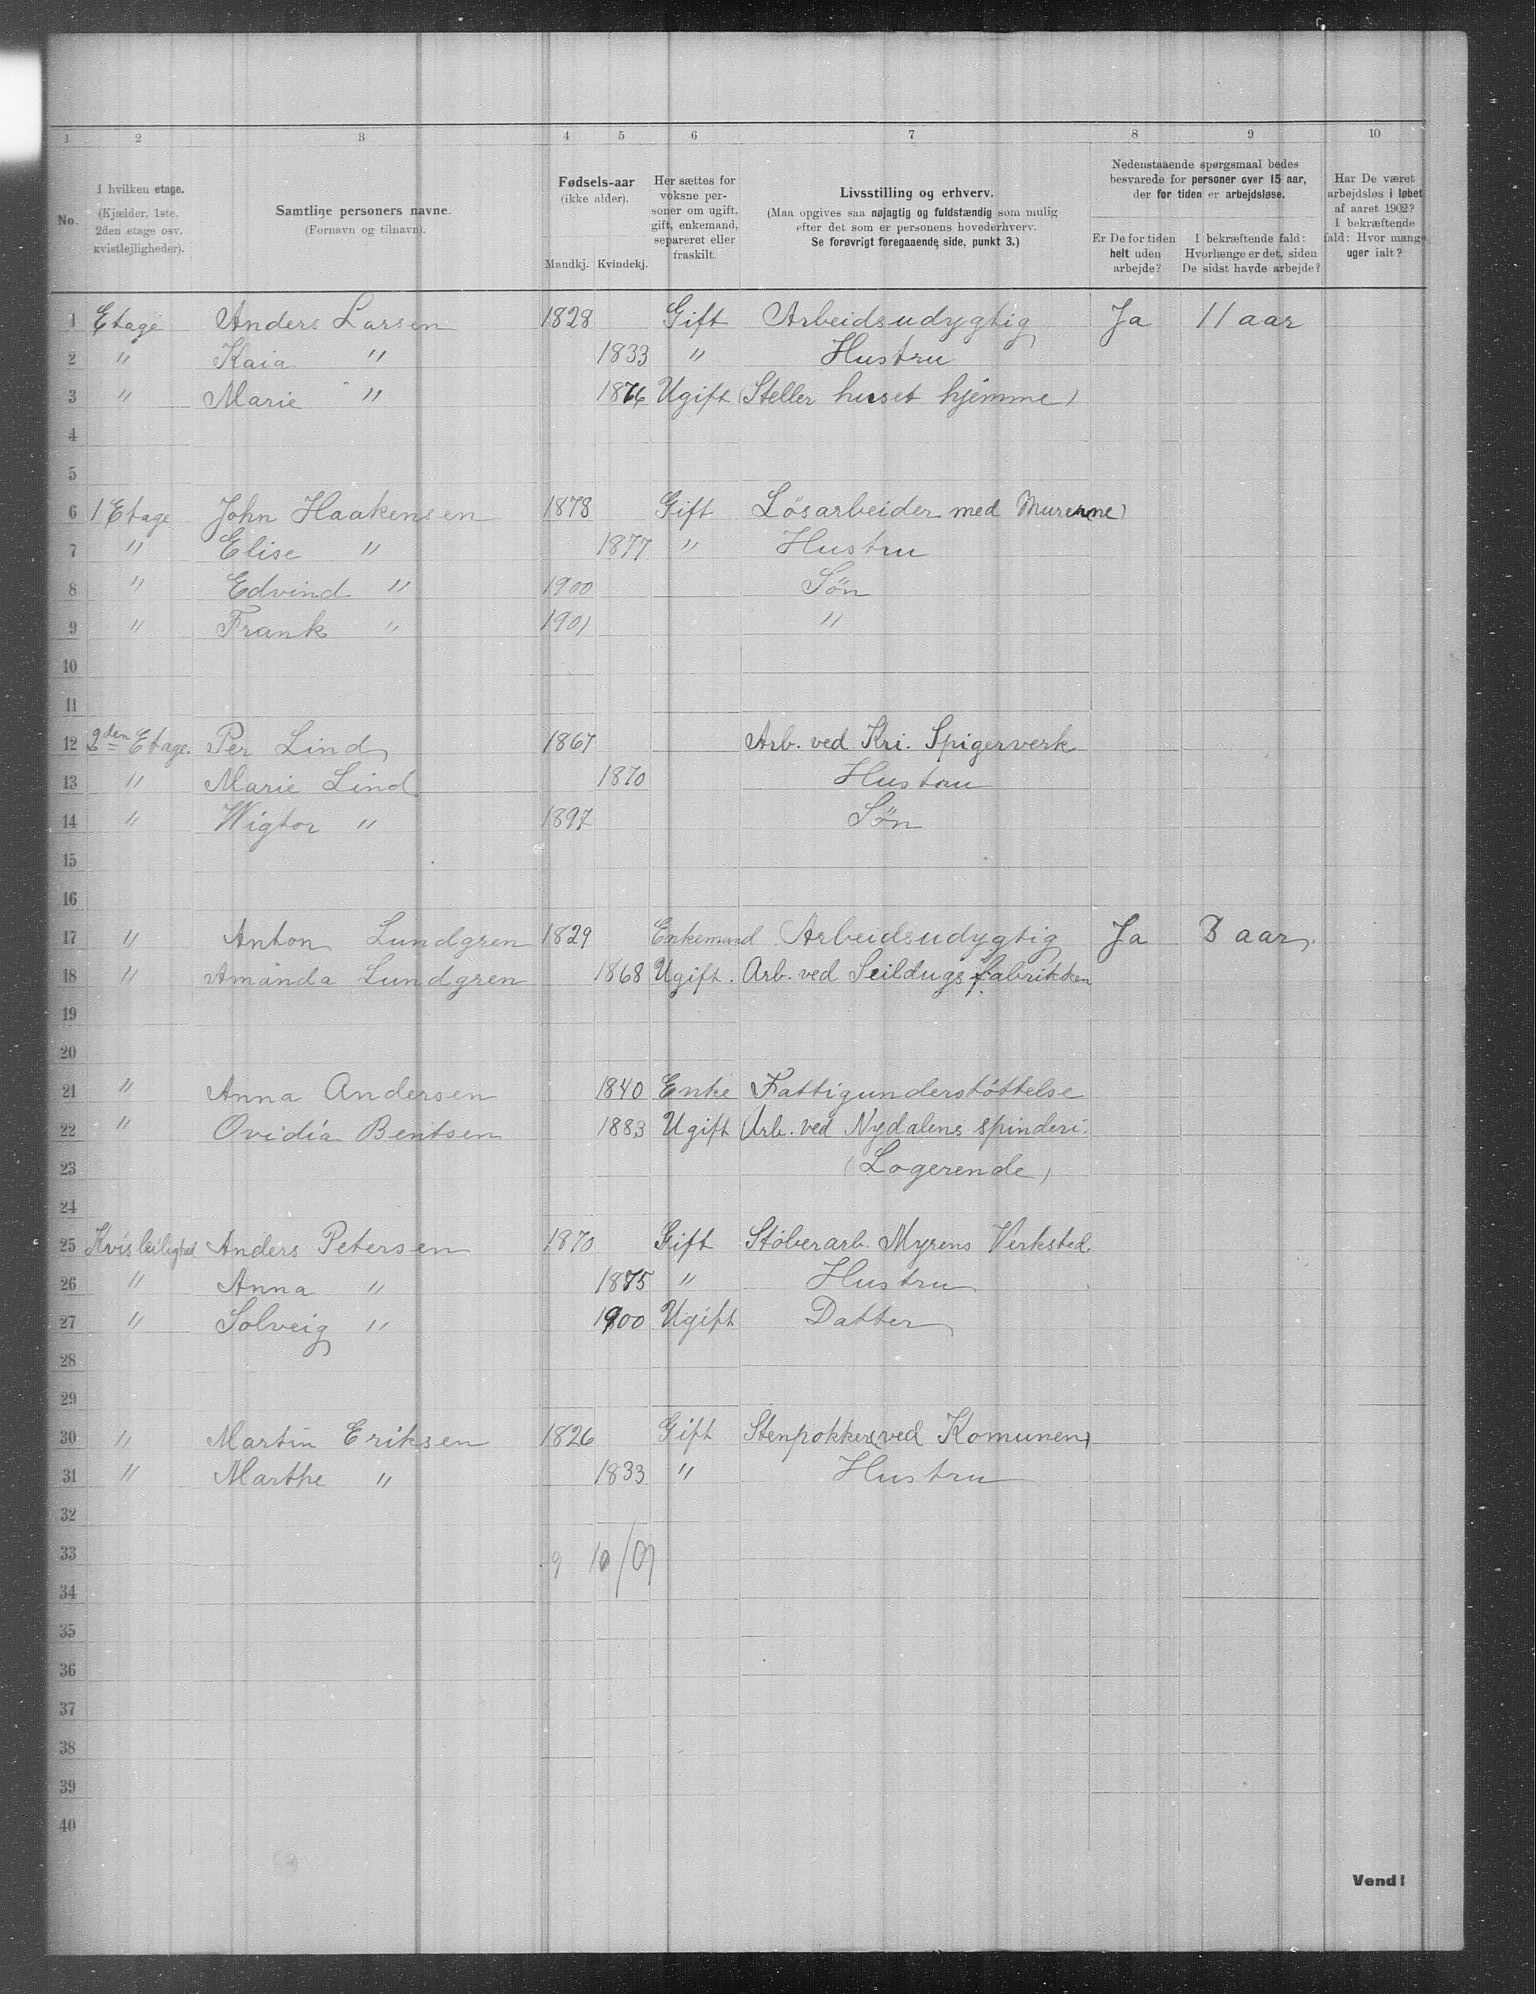 1 2 3 4 5 6 7 8 9 10
No.
I hvilken etage.
(Kjælder, 1ste, 2den etage osv. kvistlejligheder).
Samtlige personers navne.
(Fornavn og tilnavn).
Fødsels-aar
(ikke alder).
Mandkj. Kvindekj.
Her sættes for voksne personer om ugift, gift, enkemand, separeret eller fraskilt.
Livsstilling og erhverv.
(Maa opgives saa nøjagtig og fuldstændig som mulig
efter det som er personens hovederhverv.
Se forøvrigt foregaaende side, punkt 3.)
Nedenstaaende spørgsmaal bedes
besvarede for personer over 15 aar,
der for tiden er arbejdsløse.
Er De for tiden helt uden arbejde?
I bekræftende fald: Hvorlænge er det, siden De sidst havde arbejde?
Har De været arbejdsløs i løbet af aaret 1902? I bekræftende fald: Hvor mange uger ialt?
1 Etage Anders Larsen 1828 Gift Arbeidsudygtig Ja 11 aar
2 " Kaia " 1833 " Hustru
3 " Marie " 1876 Ugift (Steller huset hjemme)
4
5
6 1 Etage John Haakensen 1878 Gift Løsarbeider med Murerne)
7 " Elise " 1877 " Hustru
8 " Edvind " 1900 Søn
9 " Frank " 1901 "
10
11
12 2den Etage. Per Lind 1867 Arb. ved Kri. Spigerverk
13 " Marie Lind 1870 Hustru
14 " Wigtor " 1897 Søn
15
16
17 " Anton Lundgren 1829 Enkemand Arbeidsudygtig Ja 3 aar.
18 " Amanda Lundgren 1868 Ugift. Arb. ved Seildugsfabrikken
19
20
21 " Anna Andersen 1840 Enke Fattigunderstøttelse
22 " Ovidia Bentsen 1883 Ugift Arb. ved Nydalens spinderi.
23 (Logerende)
24
25 Kvisleilighed Anders Petersen 1870 Gift Støberarb. Myrens Verksted.
26 " Anna " 1875 " Hustru
27 " Solveig " 1900 Ugift Datter
28
29
30 " Martin Eriksen 1826 Gift Stenpokker (ved Komunen)
31 " Marthe " 1833 " Hustru
32
33 9 10/
34
35
36
37
38
39
40
Vend!